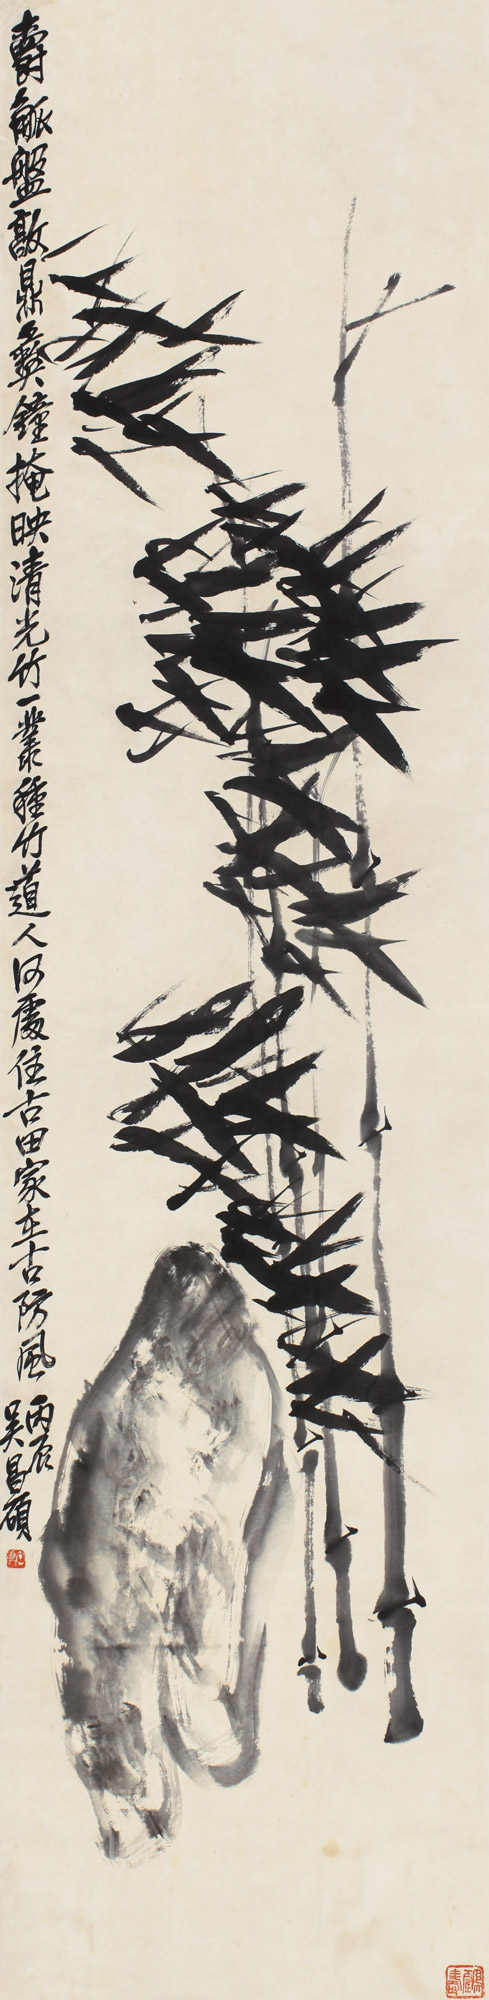 爵觚盤敦鼎彝鐘掩映清光竹一叢種竹道人何處住古田家在古防風
丙辰
吳昌碩